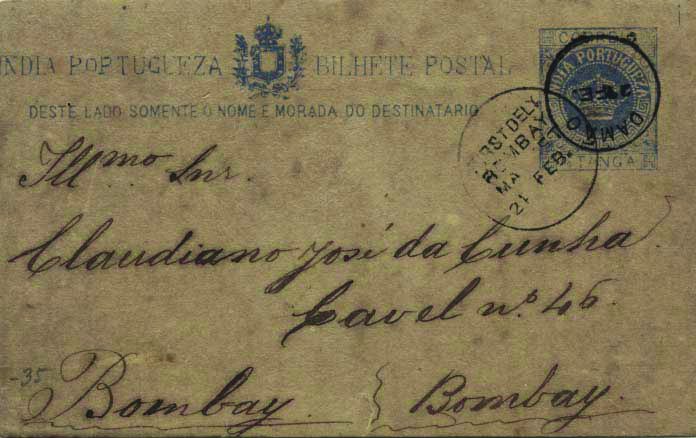 INDIA PORTUGUEZA BILHETE POSTAL
CORREIO
INDIA PORTUGUEZA
DESTE LADO SOMENTE O NOME E MORADA DO DESTINATARIO
DAMÃO
TANGA
1ST DELY
BOMBAY
MA
21 FEB.
Ill.mo Snr.
Claudiano José da Cunha
Cavel nº 46.
-35
Bombay. Bombay.